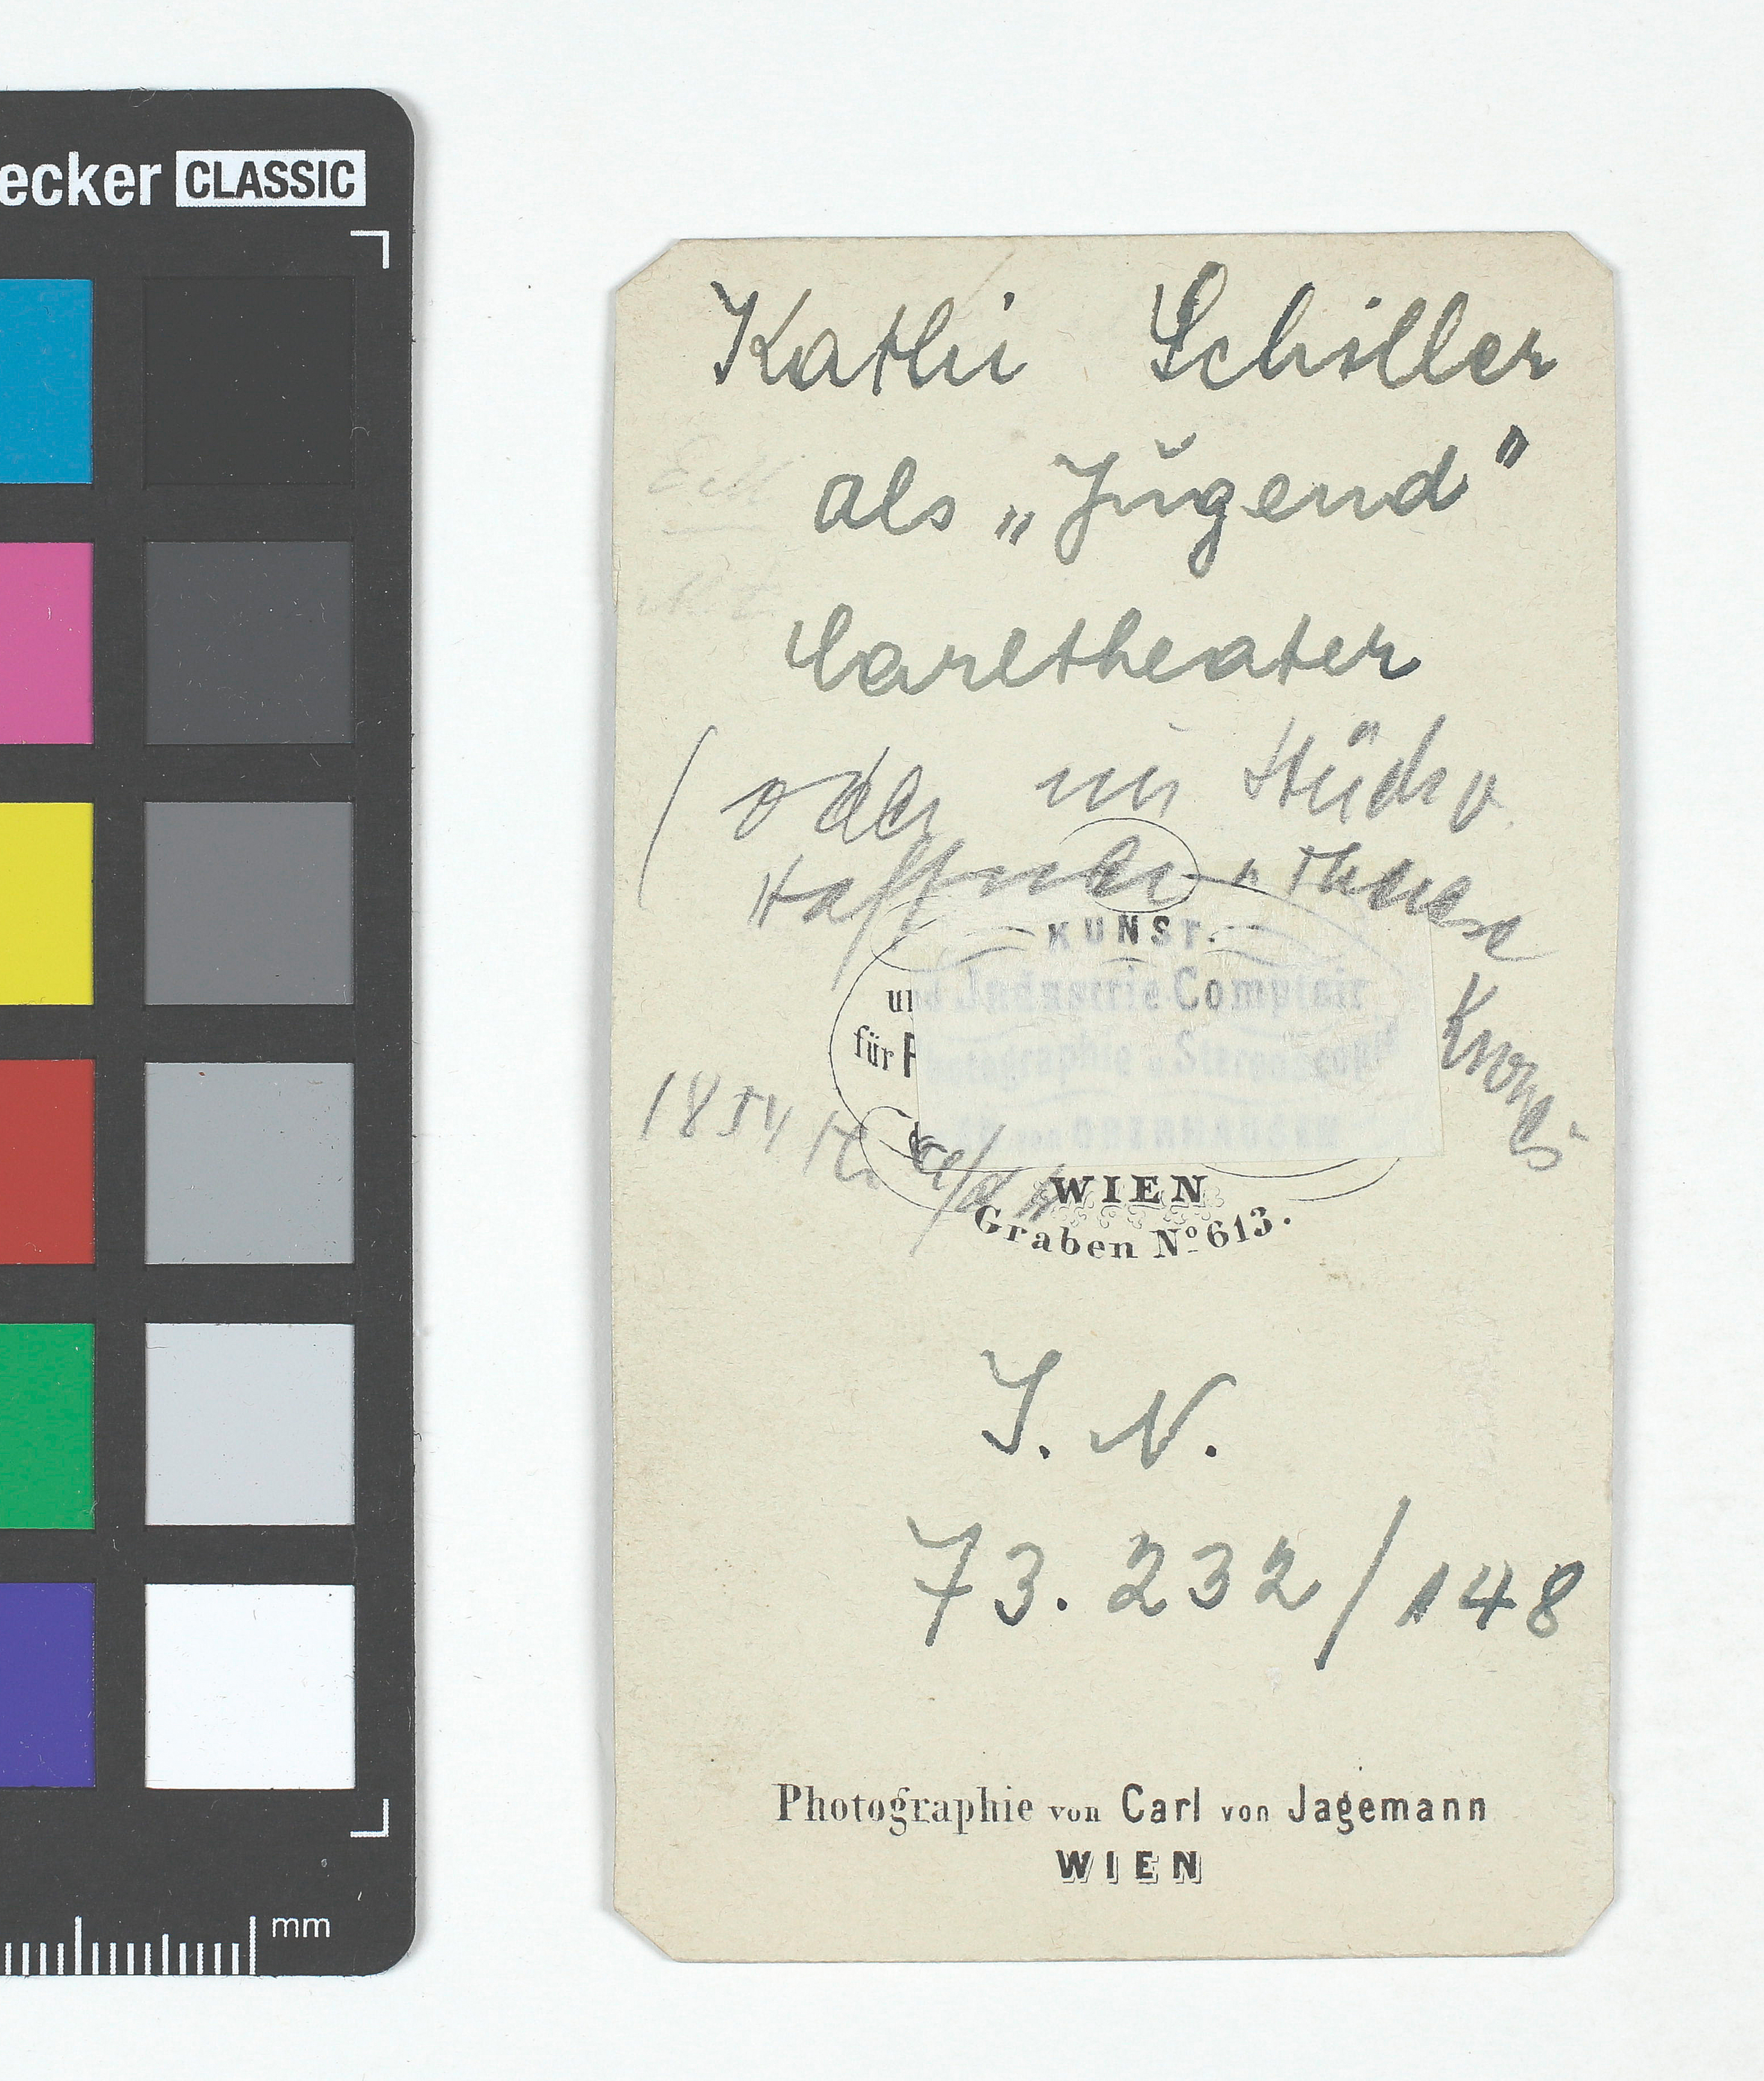 ecker CLASSIC
Kathi Schiller
als „Jugend"
Carltheater
(oder im Stück v.
Haffner "Therese
Krones"
KUNST-
und Industrie Comptoir
für Photographie u. Stereoscopie
von OBERHAUSEN
1854 Th. a/d W
WIEN
Graben No 613.
J. N.
73.232/148
Photographie von Carl von Jagemann
WIEN
mm